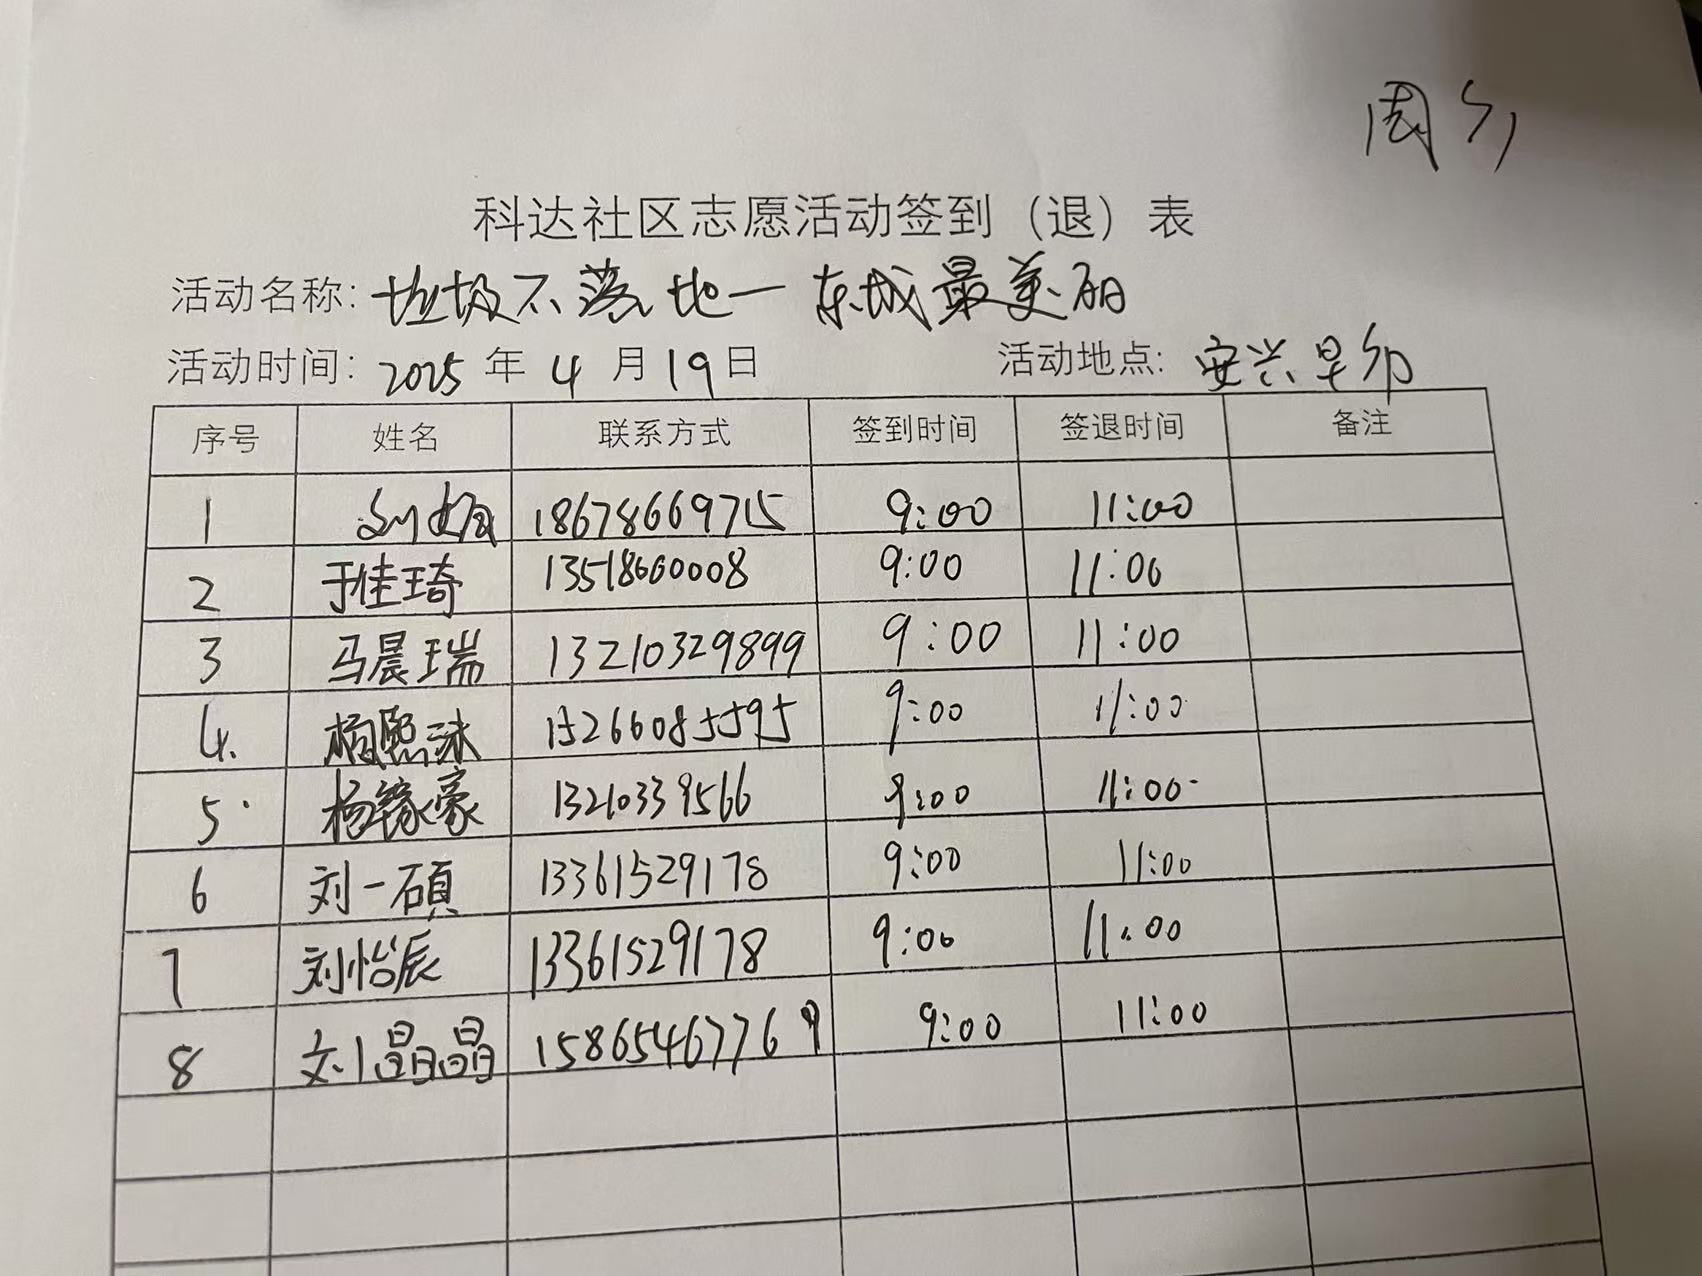 科达社区志愿活动签到（退）表
活动名称: 垃圾不落地一东城最美丽
活动时间: 2025 年 4 月 19 日 活动地点: 安兴
序号 姓名 联系方式 签到时间 签退时间 备注
1 刘娟 18678669715 9:00 11:00
2 于佳琦 13518660008 9:00 11:00
3 马晨瑞 13210329899 9:00 11:00
4. 杨熙沐 15266085595 9:00 11:00
5. 杨豪 13210339566 9:00 11:00
6 刘一碩 13361529178 9:00 11:00
7 刘怡辰 13361529178 9:00 11:00
8 刘晶晶 15865467769 9:00 11:00